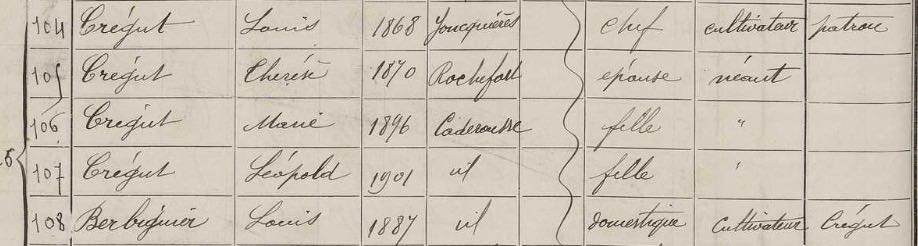 104 Crégut Louis 1868 Jonquières chef cultivateur patron
105 Crégut Thérèse 1870 Rochefort épouse néant
106 Crégut Marie 1896 Caderousse fille "
107 Crégut Léopold 1901 id fille "
108 Berbiguier Louis 1887 id domestique cultivateur Crégut